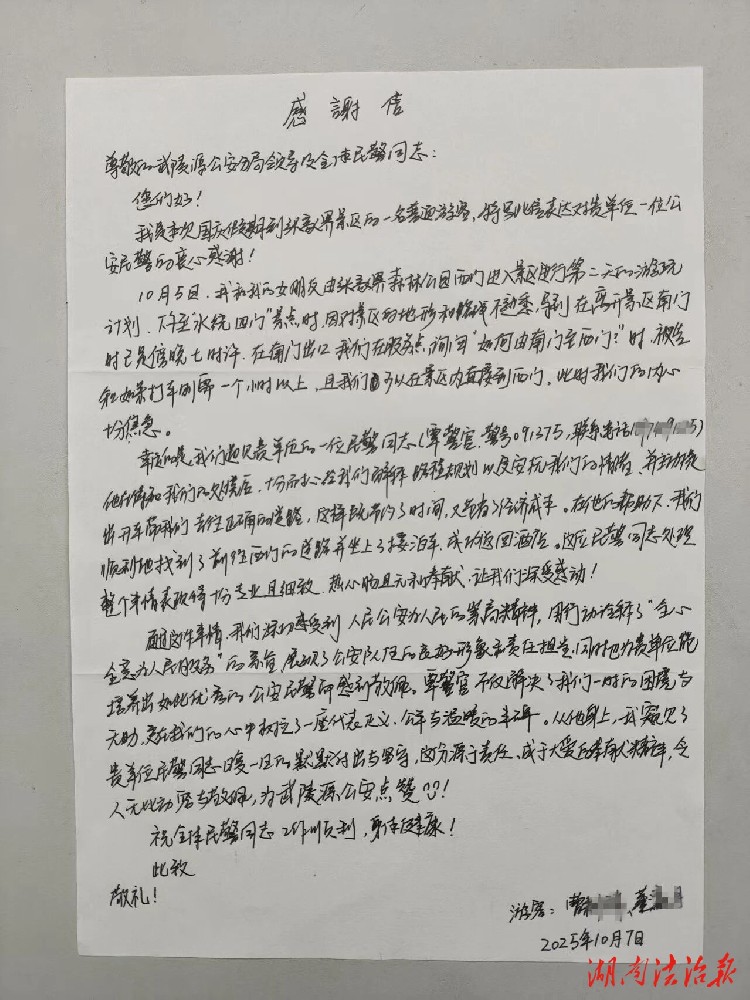 感謝信
尊敬的武陵源公安分局领导及全体民警同志：
您们好！
我是本次国庆假期到张家界景区的一名普通游客，特写此信表达对贵单位一位公
安民警的衷心感谢！
10月5日，我和我的女朋友由张家界森林公园西门进入景区进行第二天的游玩
计划，下午至水绕四门"景点时，因对景区的地形和路线不熟悉，导到在离开景区南门
时已是傍晚七时许。在南门出口我们在服务点询问"如何由南门至西门？"时，被告
知如果打车则需一个小时以上，且我们可以在景区内直接到西门，此时我们的内心
十分焦急。
幸运的是，我们遇见贵单位的一位民警同志（覃警官，警号091375，联系电话
他在得知我们的处境后，十分耐心给我们讲解路程规划以及安抚我们的情绪，并主动提
出开车带我们去往正确的道路，这样既节约了时间，又节省了经济成本。在他的帮助下，我们
顺利地找到了前往西门的道路并坐上了接泊车，成功返回酒店。这位民警同志处理
整个事情表现得十分专业且细致，热心助且无私奉献，让我们深受感动！
通过这件事情，我们深切感受到人民公安为人民的崇高精神，用行动诠释了"全心
全意为人民服务"的宗旨，展现了公安队伍的良好形象和责任担当，同时也为贵单位能
培养出如此优秀的公安民警而感到敬佩。覃警官不仅解决了我们一时的困境与
无助，更在我们的心中树立了一座代表正义、公平与温暖的丰碑。从他身上，我窥见了
贵单位民警同志日复一日的默默付出与坚守，这份源于责任、成于大爱的奉献精神，令
人无比动容与敬佩，为武陵源公安点赞！
祝全体民警同志工作顺利，身体健康！
此致
敬礼！
游客：曹 、董
2025年10月7日
湖南法治报